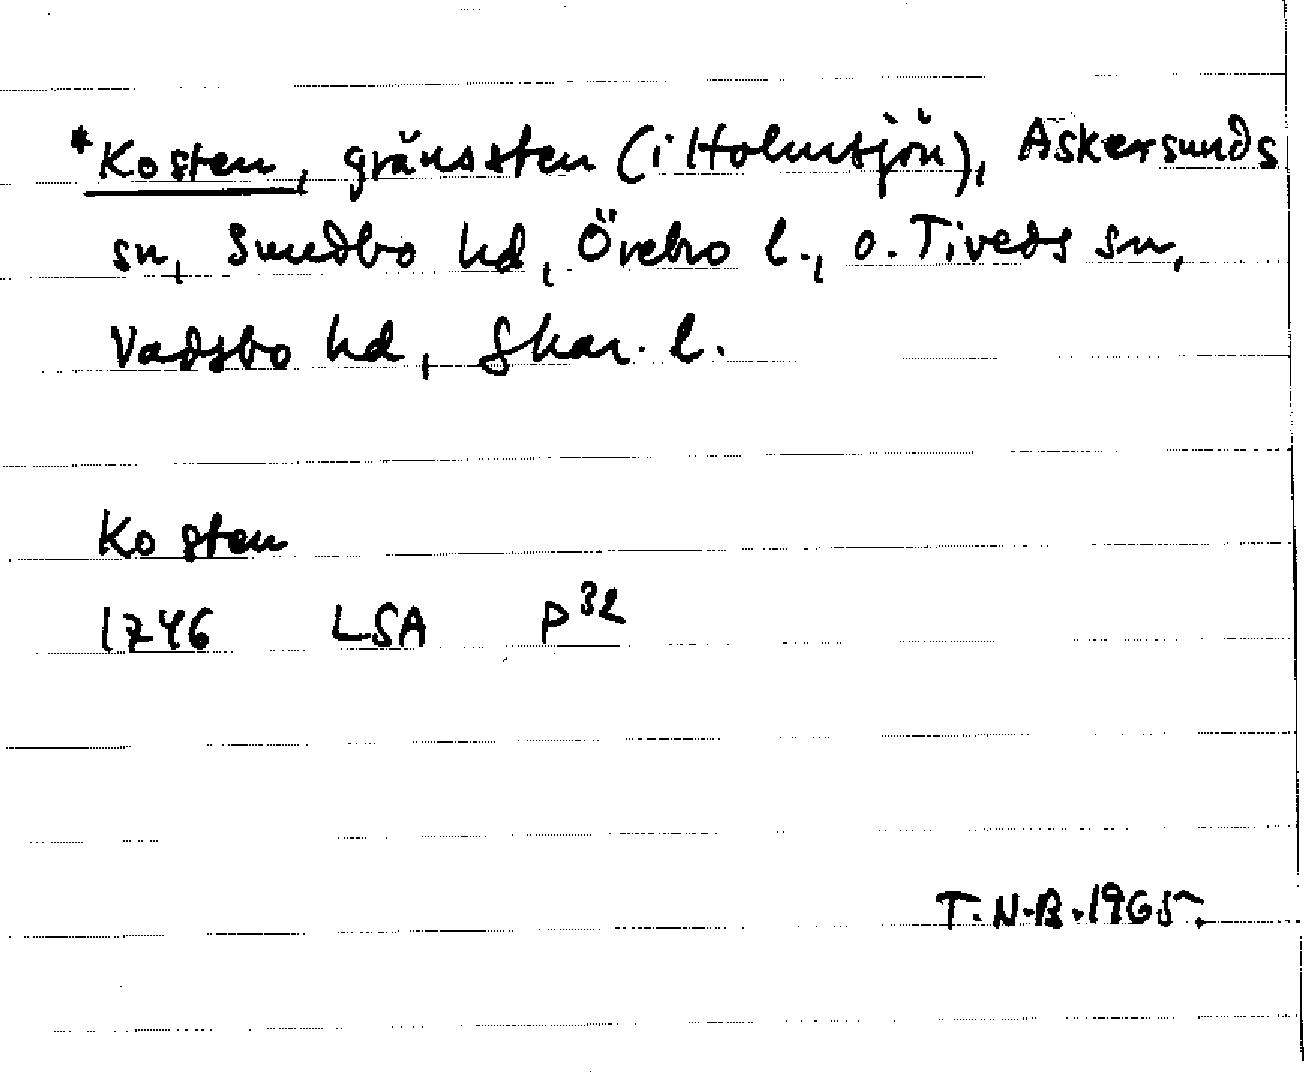 *Kosten, gränssten (i Holmsjön), Askersunds
sn, Sundbo hd, Örebro l., o. Tiveds sn,
Vadsbo hd, Skar. l.
Kosten
1746 LSA P32
T.N.B. 1965.